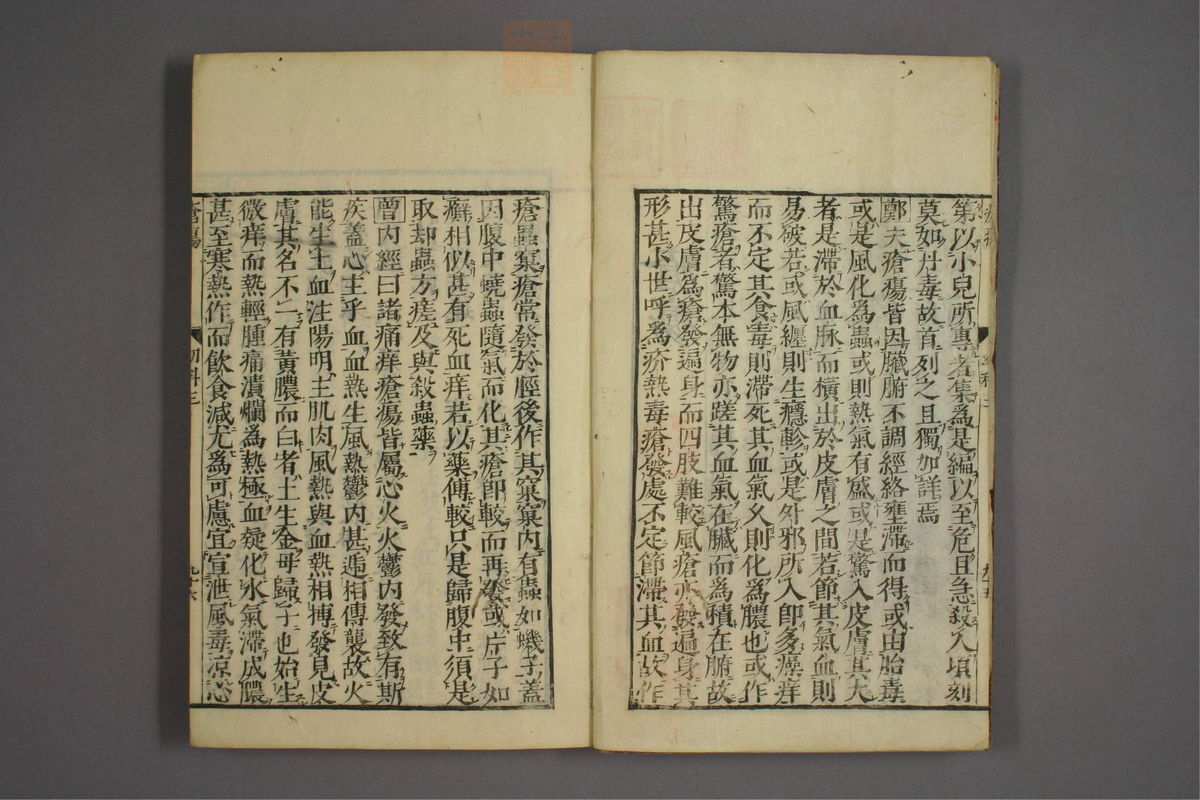 第以小兒所專者集爲是編以至危且急殺人頃刻
莫如丹毒故首列之且獨加詳焉
鄭夫瘡瘍皆因臟腑不調經絡壅滯而得或由胎毒
或是風化爲蟲或則熱氣有盛或是驚入皮膚其大
者是滯於血脉而橫出於皮膚之間若節其氣血則
易破若或風纏則生癮軫或是外邪所入即多癢痒
而不定其食毒則滯死其血氣久則化爲膿也或作
驚瘡者驚本無物亦蹉其血氣在臟而爲積在腑故
出皮膚爲瘡發遍身而四肢難較風瘡亦發遍身其
形甚小世呼爲疥熱毒瘡發處不定節滯其血故作
瘡蟲窠瘡常發於脛後作其窠窠內有蟲如蟣子蓋
因腹中蟯蟲隨氣而化其瘡即較而再發或片子如
癬相似甚有死血痒若以藥傅較只是歸腹中須是
取却蟲方瘥及與殺蟲藥
曾內經曰諸痛痒瘡瘍皆屬心火火鬱內發致有斯
疾蓋心主乎血血熱生風熱鬱內甚遞相傳襲故火
能生土血注陽明主肌肉風熱與血熱相搏發見皮
膚其名不一有黃膿而白者土生金母歸子也始生
微痒而熱輕腫痛潰爛爲熱極血凝化水氣滯成膿
甚至寒熱作而飲食減尤爲可慮宜宣泄風毒凉心
瘡瘍
幼科三
九十六